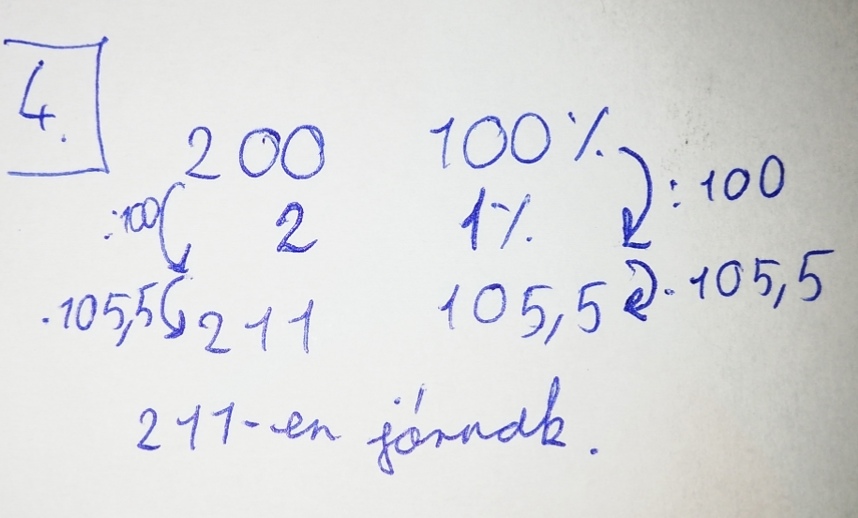 4.
200 100%
:100 2 1% :100
·105,5 211 105,5 ·105,5
211-en járnak.